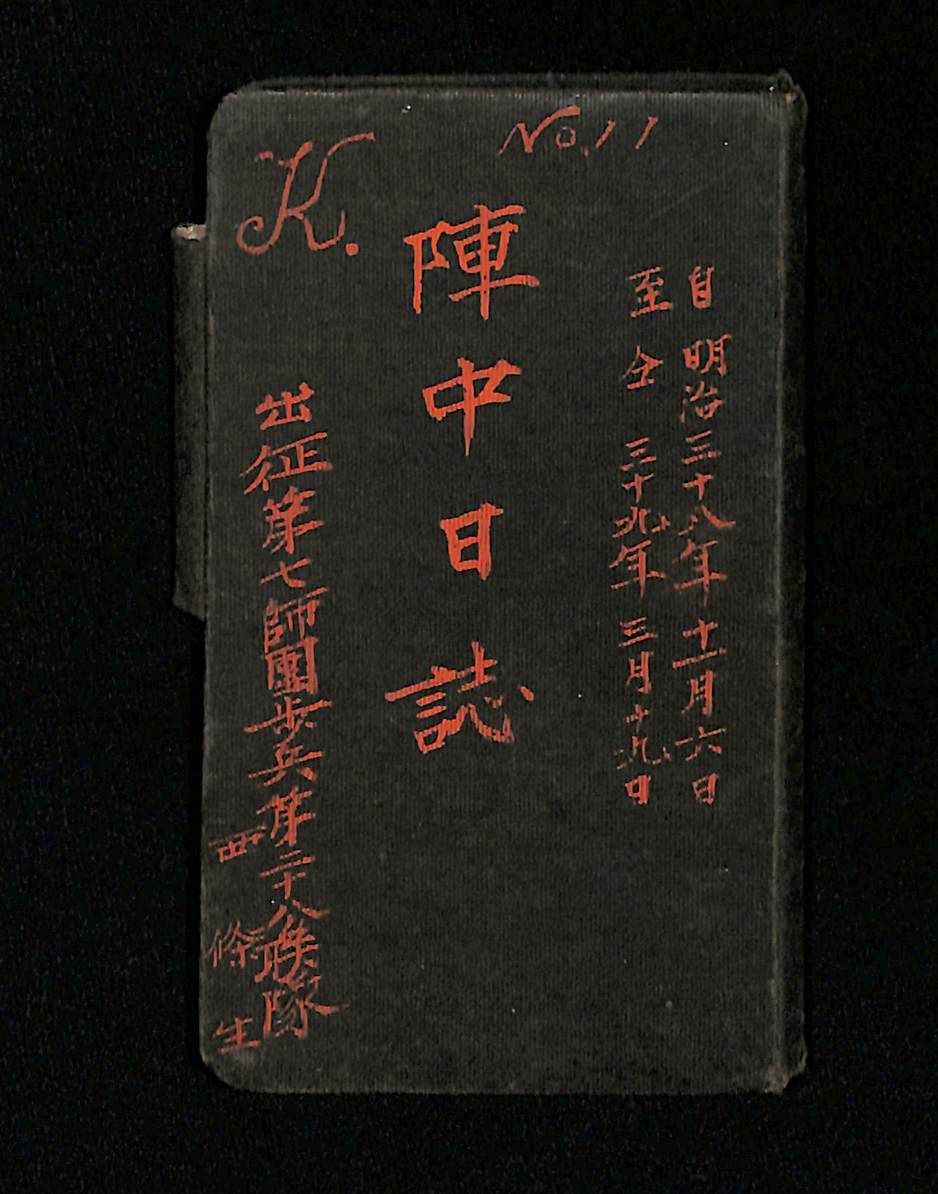 K.
No.11
自 明治三十八年十一月六日
至 仝 三十九年三月十九日
陣中日誌
出征第七師團歩兵第二十八聯隊
西條生